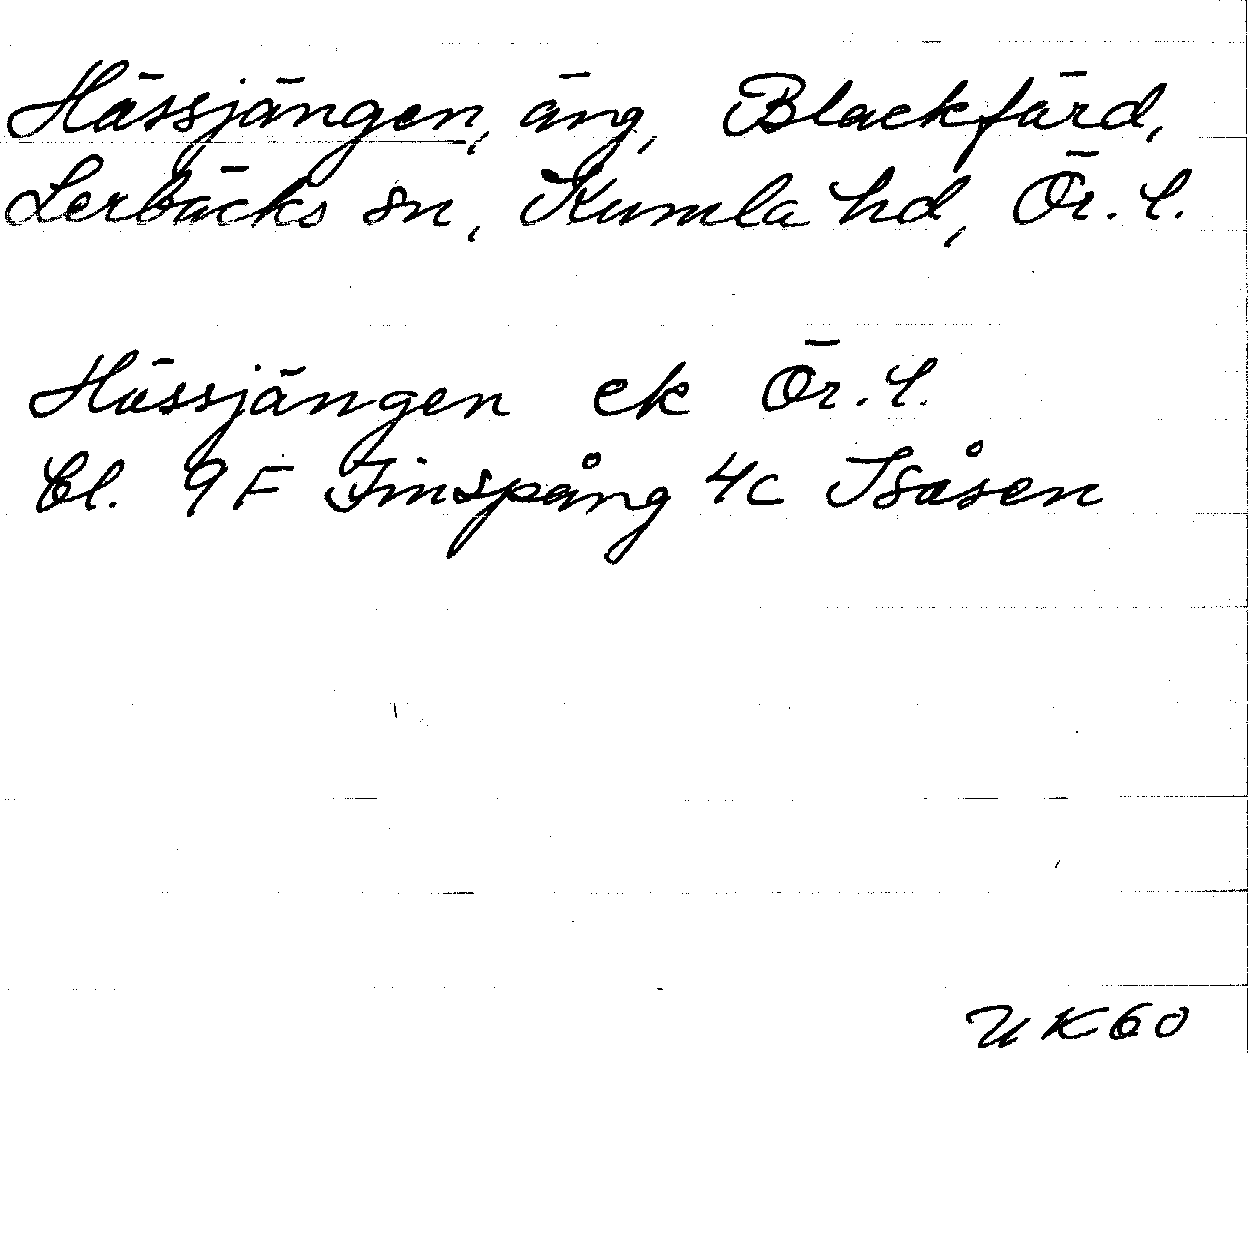 Hässjängen, äng, Blackfärd,
Lerbäcks sn, Kumla hd, Ör. l.
Hässjängen ek Ör. l.
Bl. 9F Finspång 4c Isåsen
UK60